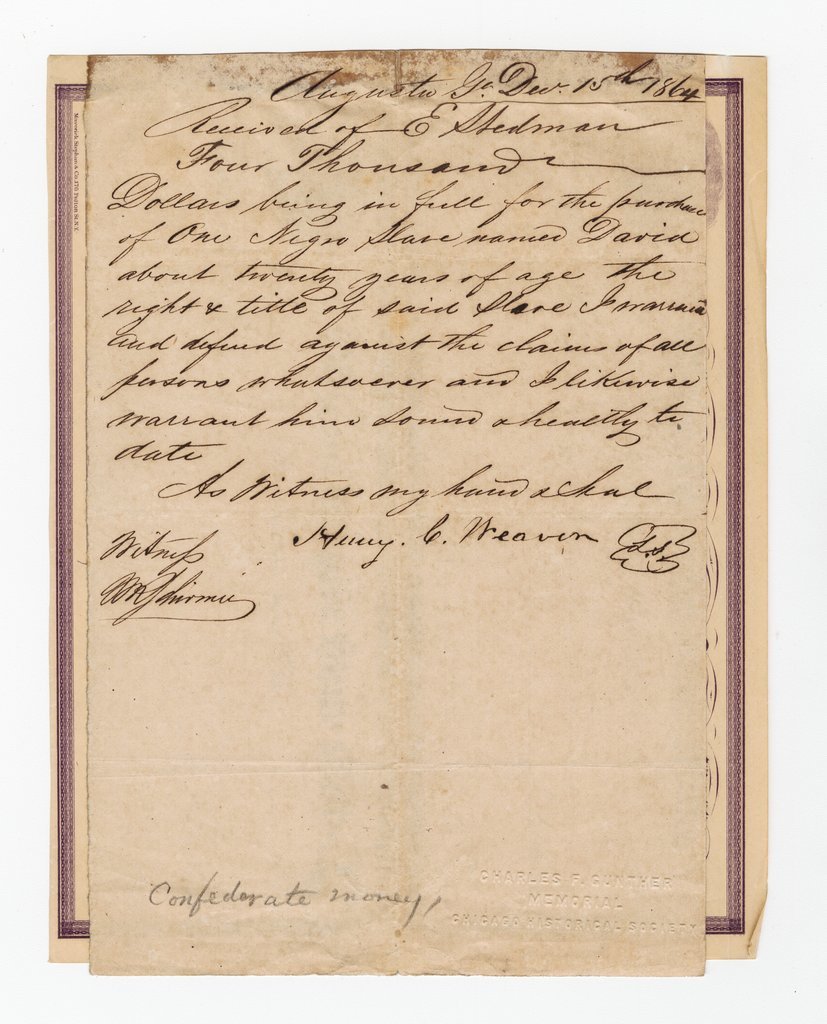 Augusta Ga Dec. 15th 1864
Received of E Stedman
Four Thousand
Dollars being in full for the purchase
of One Negro Slave named David
about twenty years of age the
right & title of said Slave I warrant
and defend against the claims of all
persons whatsoever and I likewise
warrant him sound & healthy to
date
As Witness my hand & Seal
Henry. C. Weaver L.S.
Witness
Confederate money,
CHARLES F. GUNTHER
MEMORIAL
CHICAGO HISTORICAL SOCIETY